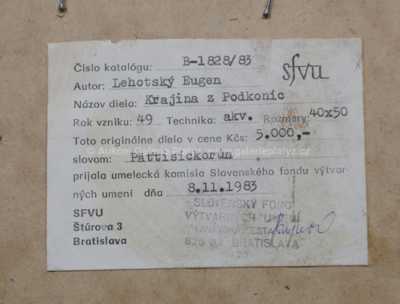 Číslo katalógu: B-1828/83
sfvu
Autor: Lehotský Eugen
Názov diela: Krajina z Podkonic
Rok vzniku: 49 Technika: akv. Rozmery: 40x50
Toto originálne dielo v cene Kčs: 5.000,-
slovom: Päťtisíckorún
prijala umelecká komisia Slovenského fondu výtvar-
ných umení dňa 8.11.1983
SFVU
Štúrova 3
Bratislava
SLOVENSKÝ FOND
VÝTVARNÝCH UMENÍ
BRATISLAVA